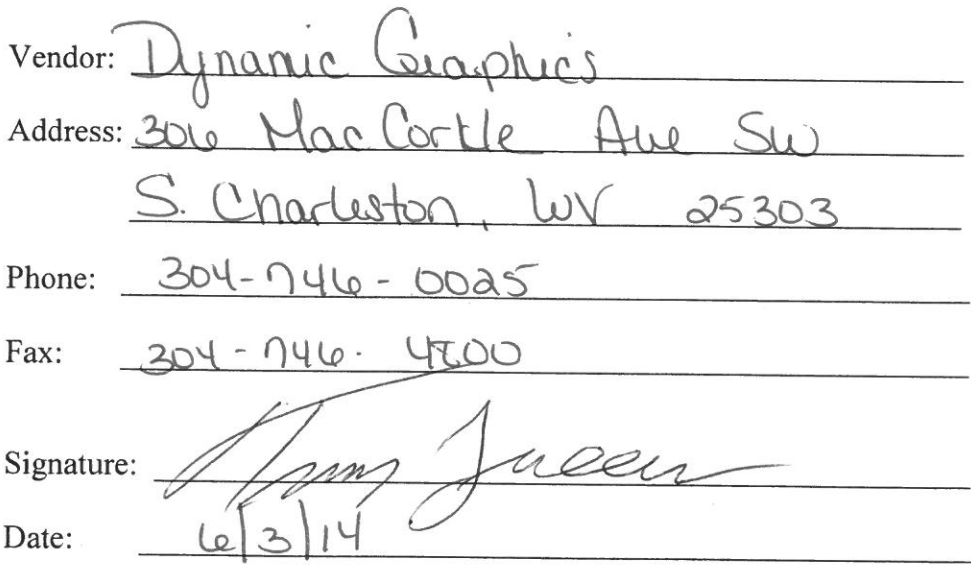 Vendor: Dynamic Graphics
Address: 306 Mac Corkle Ave SW
S. Charleston, WV 25303
Phone: 304-746-0025
Fax: 304-746-
Signature:
Date: 6/3/14